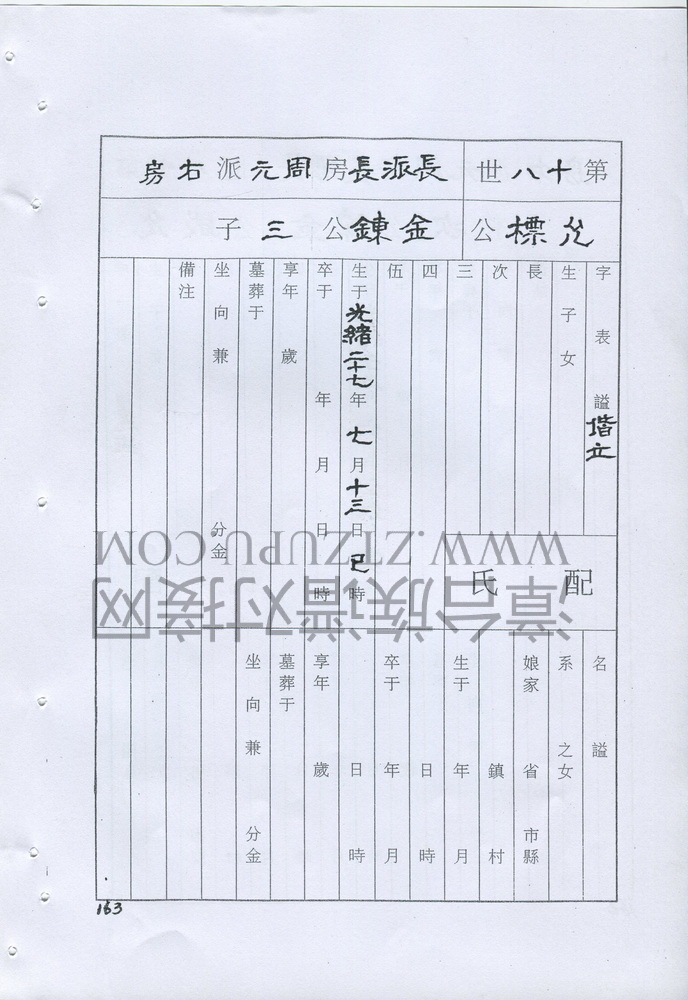 第十八世
長派長房周元派右房
允標公
金鍊公三子
字表謚 偕立
生子女
長
次
三
四
伍
生于光緒二十七年七月十三日巳時
卒于 年 月 日 時
享年 歲
墓葬于
坐向兼 分金
備注
配 氏
名 謚
系 之女
娘家 省 市縣
鎮 村
生于 年 月
日 時
卒于 年 月
日 時
享年 歲
墓葬于
坐向兼 分金
163
WWW.ZTZUPU.COM
漳台族谱对接网